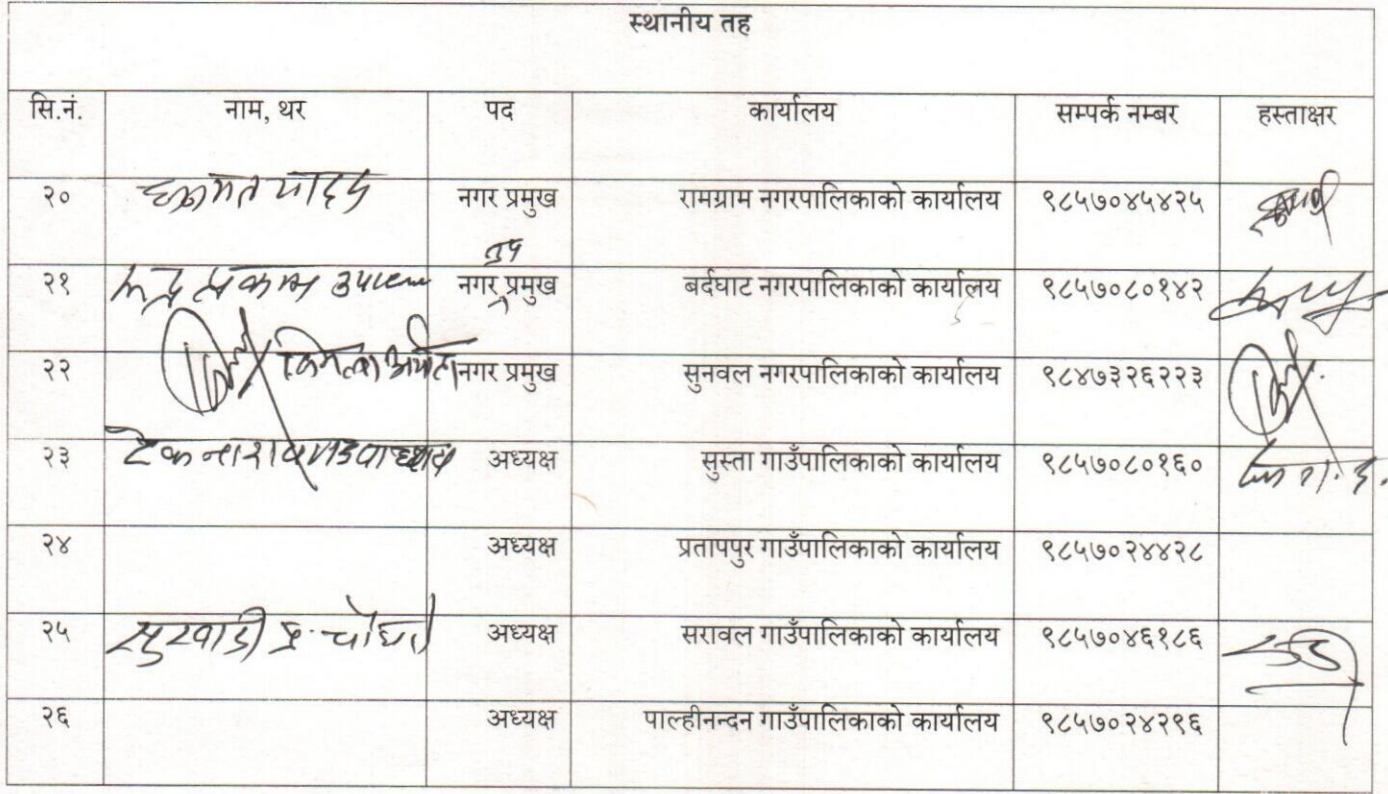 स्थानीय तह
सि.नं. नाम, थर पद कार्यालय सम्पर्क नम्बर हस्ताक्षर
२० यादव नगर प्रमुख रामग्राम नगरपालिकाको कार्यालय ९८५७०४५४२५
उप
२१ नगर प्रमुख बर्दघाट नगरपालिकाको कार्यालय ९८५७०८०१४२
२२ नगर प्रमुख सुनवल नगरपालिकाको कार्यालय ९८४७३२६२२३
२३ टेक नारायण उपाध्याय अध्यक्ष सुस्ता गाउँपालिकाको कार्यालय ९८५७०८०१६०
२४ अध्यक्ष प्रतापपुर गाउँपालिकाको कार्यालय ९८५७०२४४२८
२५ प्र. चौधरी अध्यक्ष सरावल गाउँपालिकाको कार्यालय ९८५७०४६१८६
२६ अध्यक्ष पाल्हीनन्दन गाउँपालिकाको कार्यालय ९८५७०२४२९६